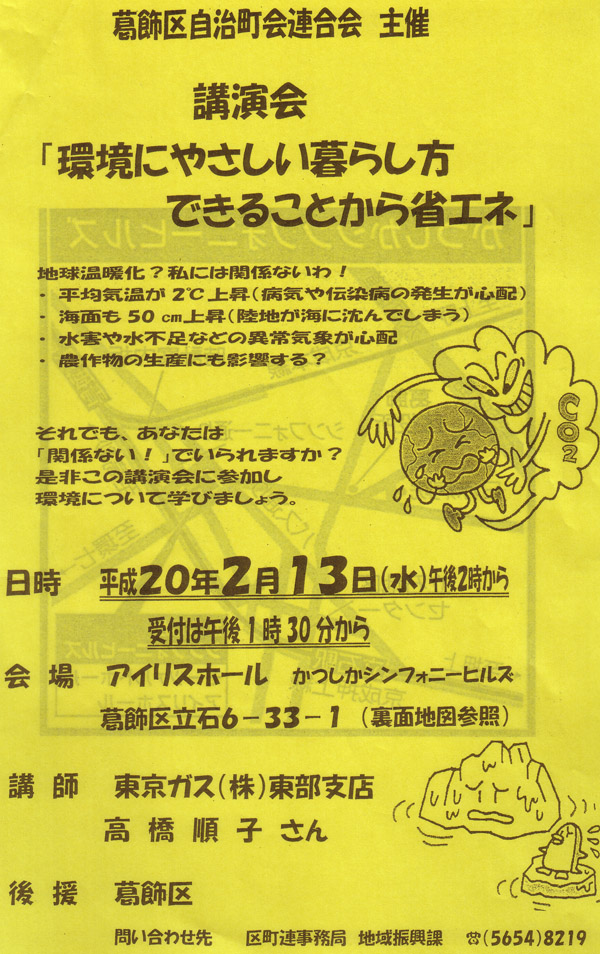 葛飾区自治町会連合会 主催
講演会
「環境にやさしい暮らし方
できることから省エネ」
地球温暖化？私には関係ないわ！
・ 平均気温が 2℃上昇(病気や伝染病の発生が心配)
・ 海面も 50cm上昇(陸地が海に沈んでしまう)
・ 水害や水不足などの異常気象が心配
・ 農作物の生産にも影響する？
CO2
それでも、あなたは
「関係ない！」でいられますか？
是非この講演会に参加し
環境について学びましょう。
日時 平成20年2月13日(水)午後2時から
受付は午後1時30分から
会場 アイリスホール かつしかシンフォニーヒルズ
葛飾区立石6-33-1 (裏面地図参照)
講師 東京ガス(株)東部支店
高橋順子さん
後援 葛飾区
問い合わせ先 区町連事務局 地域振興課 ☎(5654)8219